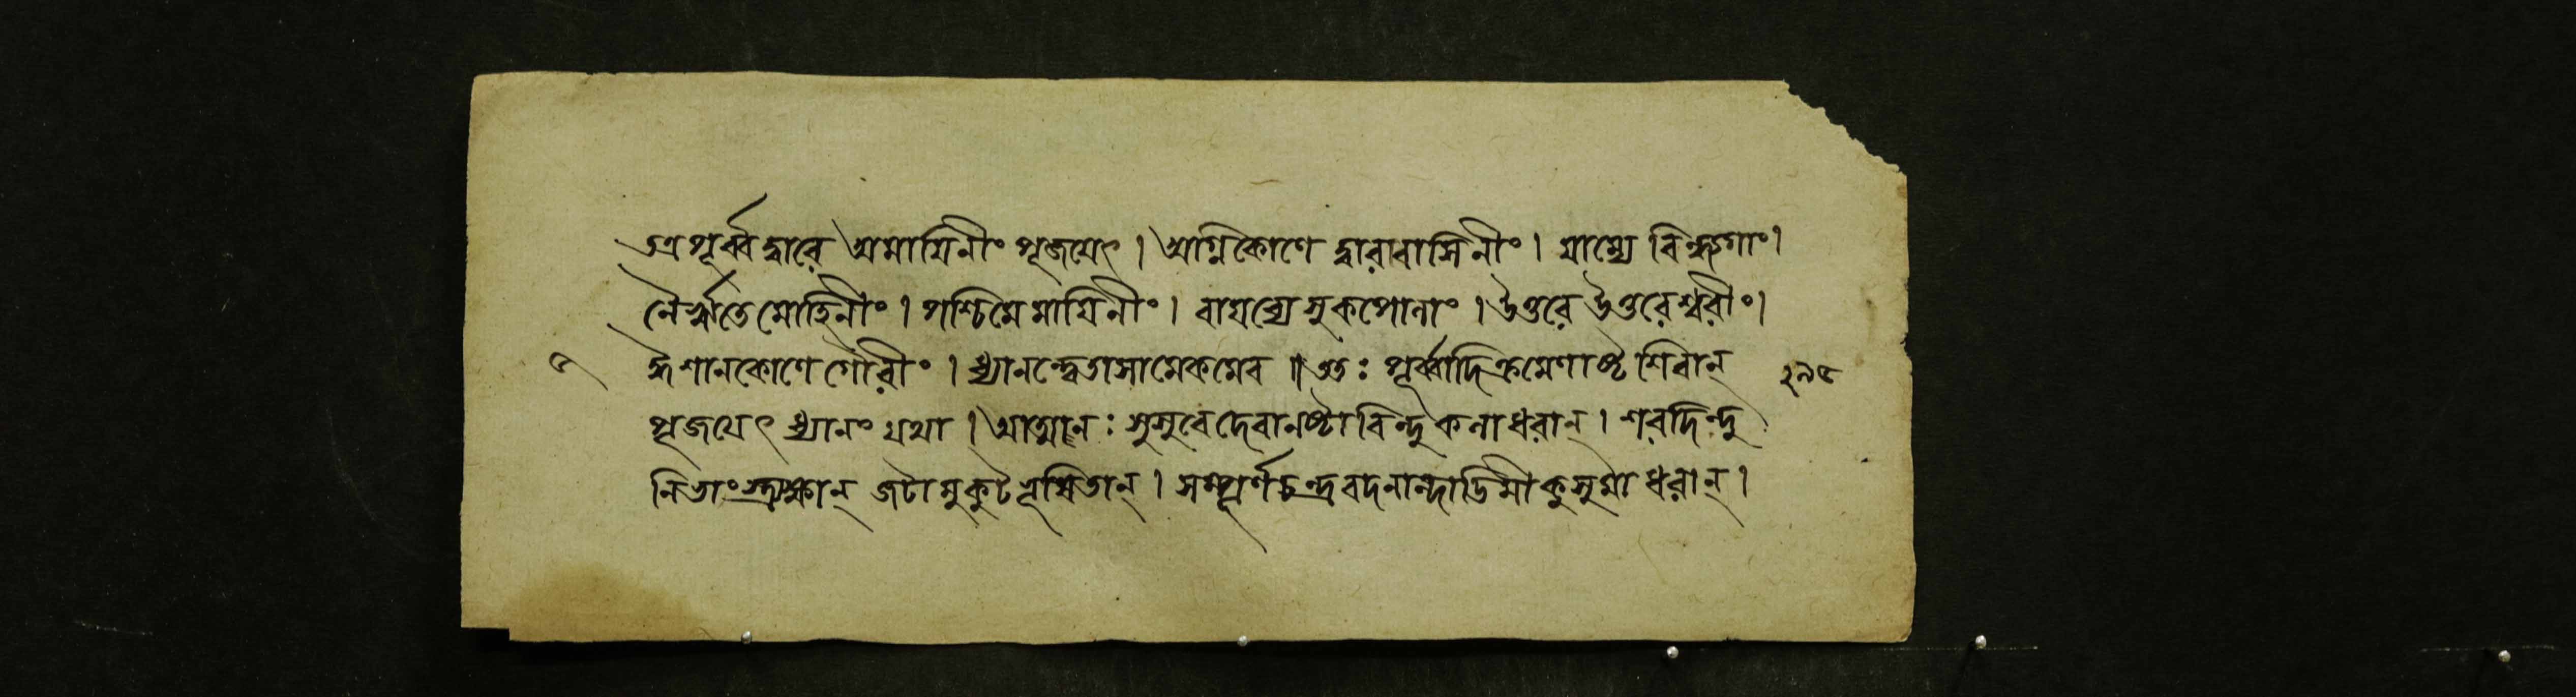 তত্র পূর্ব্বদ্বারে অমায়িনীং পূজয়েৎ । আগ্নিকোণে দ্বারাবাসিনীং । যাম্যে বিন্ধ্যগাং ।
নৈর্ঋতে মোহিনীং । পশ্চিমে মায়িনীং । বায়ব্যে সুকপোলাং । উত্তরে উত্তরেশ্বরীং ।
ঈশানকোণে গৌরীং । ধ্যানন্ত্বেতাসামেকমেব ॥ ততঃ পূর্ব্বাদিক্রমেণাষ্ট শিবান্
পূজয়েৎ ধ্যানং যথা । আত্মানঃ সুসুবে দেবানষ্টৌ বিন্দুকলাধরান্ । শরদিন্দু
নিভাংস্ত্র্যক্ষান্ জটামুকুটভূষিতান্ । সম্পূর্ণচন্দ্রবদনান্দাডিমীকুসুমাধরান্ ।